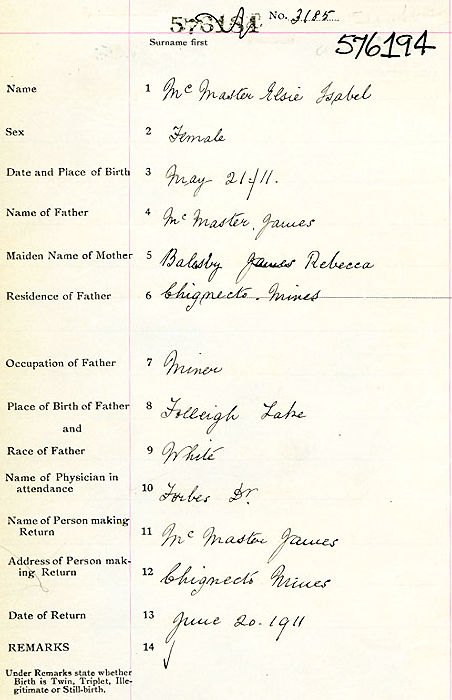 No. 3185
576184
Surname first
576194
Name 1 Mc Master Elsie Isabel
Sex 2 Female
Date and Place of Birth 3 May 21/11.
Name of Father 4 Mc Master, James
Maiden Name of Mother 5 James Rebecca
Residence of Father 6 Chignecto. Mines
Occupation of Father 7 Miner
Place of Birth of Father 8 Folleigh Lake
and
Race of Father 9 White
Name of Physician in
attendance 10 Forbes Dr.
Name of Person making
Return 11 Mc Master James
Address of Person mak-
ing Return 12 Chignecto Mines
Date of Return 13 June 20. 1911
REMARKS 14
Under Remarks state whether
Birth is Twin, Triplet, Ille-
gitimate or Still-birth.